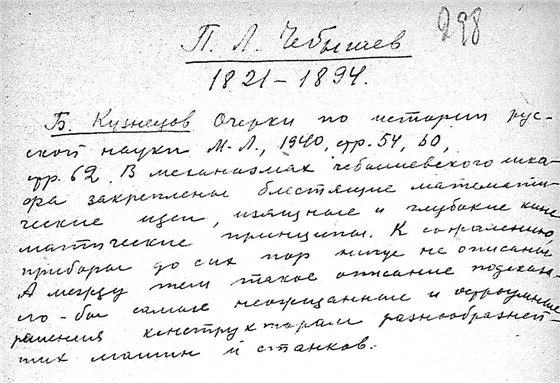 298
П. Л. Чебышев
1821-1894.
Б. Кузнецов Очерки по истории рус-
ской науки М-Л., 1940, стр. 54, 60,
стр. 62. В механизмах чебышевского шка-
фа закреплены блестящие математи-
ческие идеи, изящные и глубокие кине
матические принципы. К сожалению
приборы до сих пор нигде не описаны
А между тем такое описание подска-
ло-бы самые неожиданные и остроумные
решения конструкторам разнообразней-
ших машин и станков.